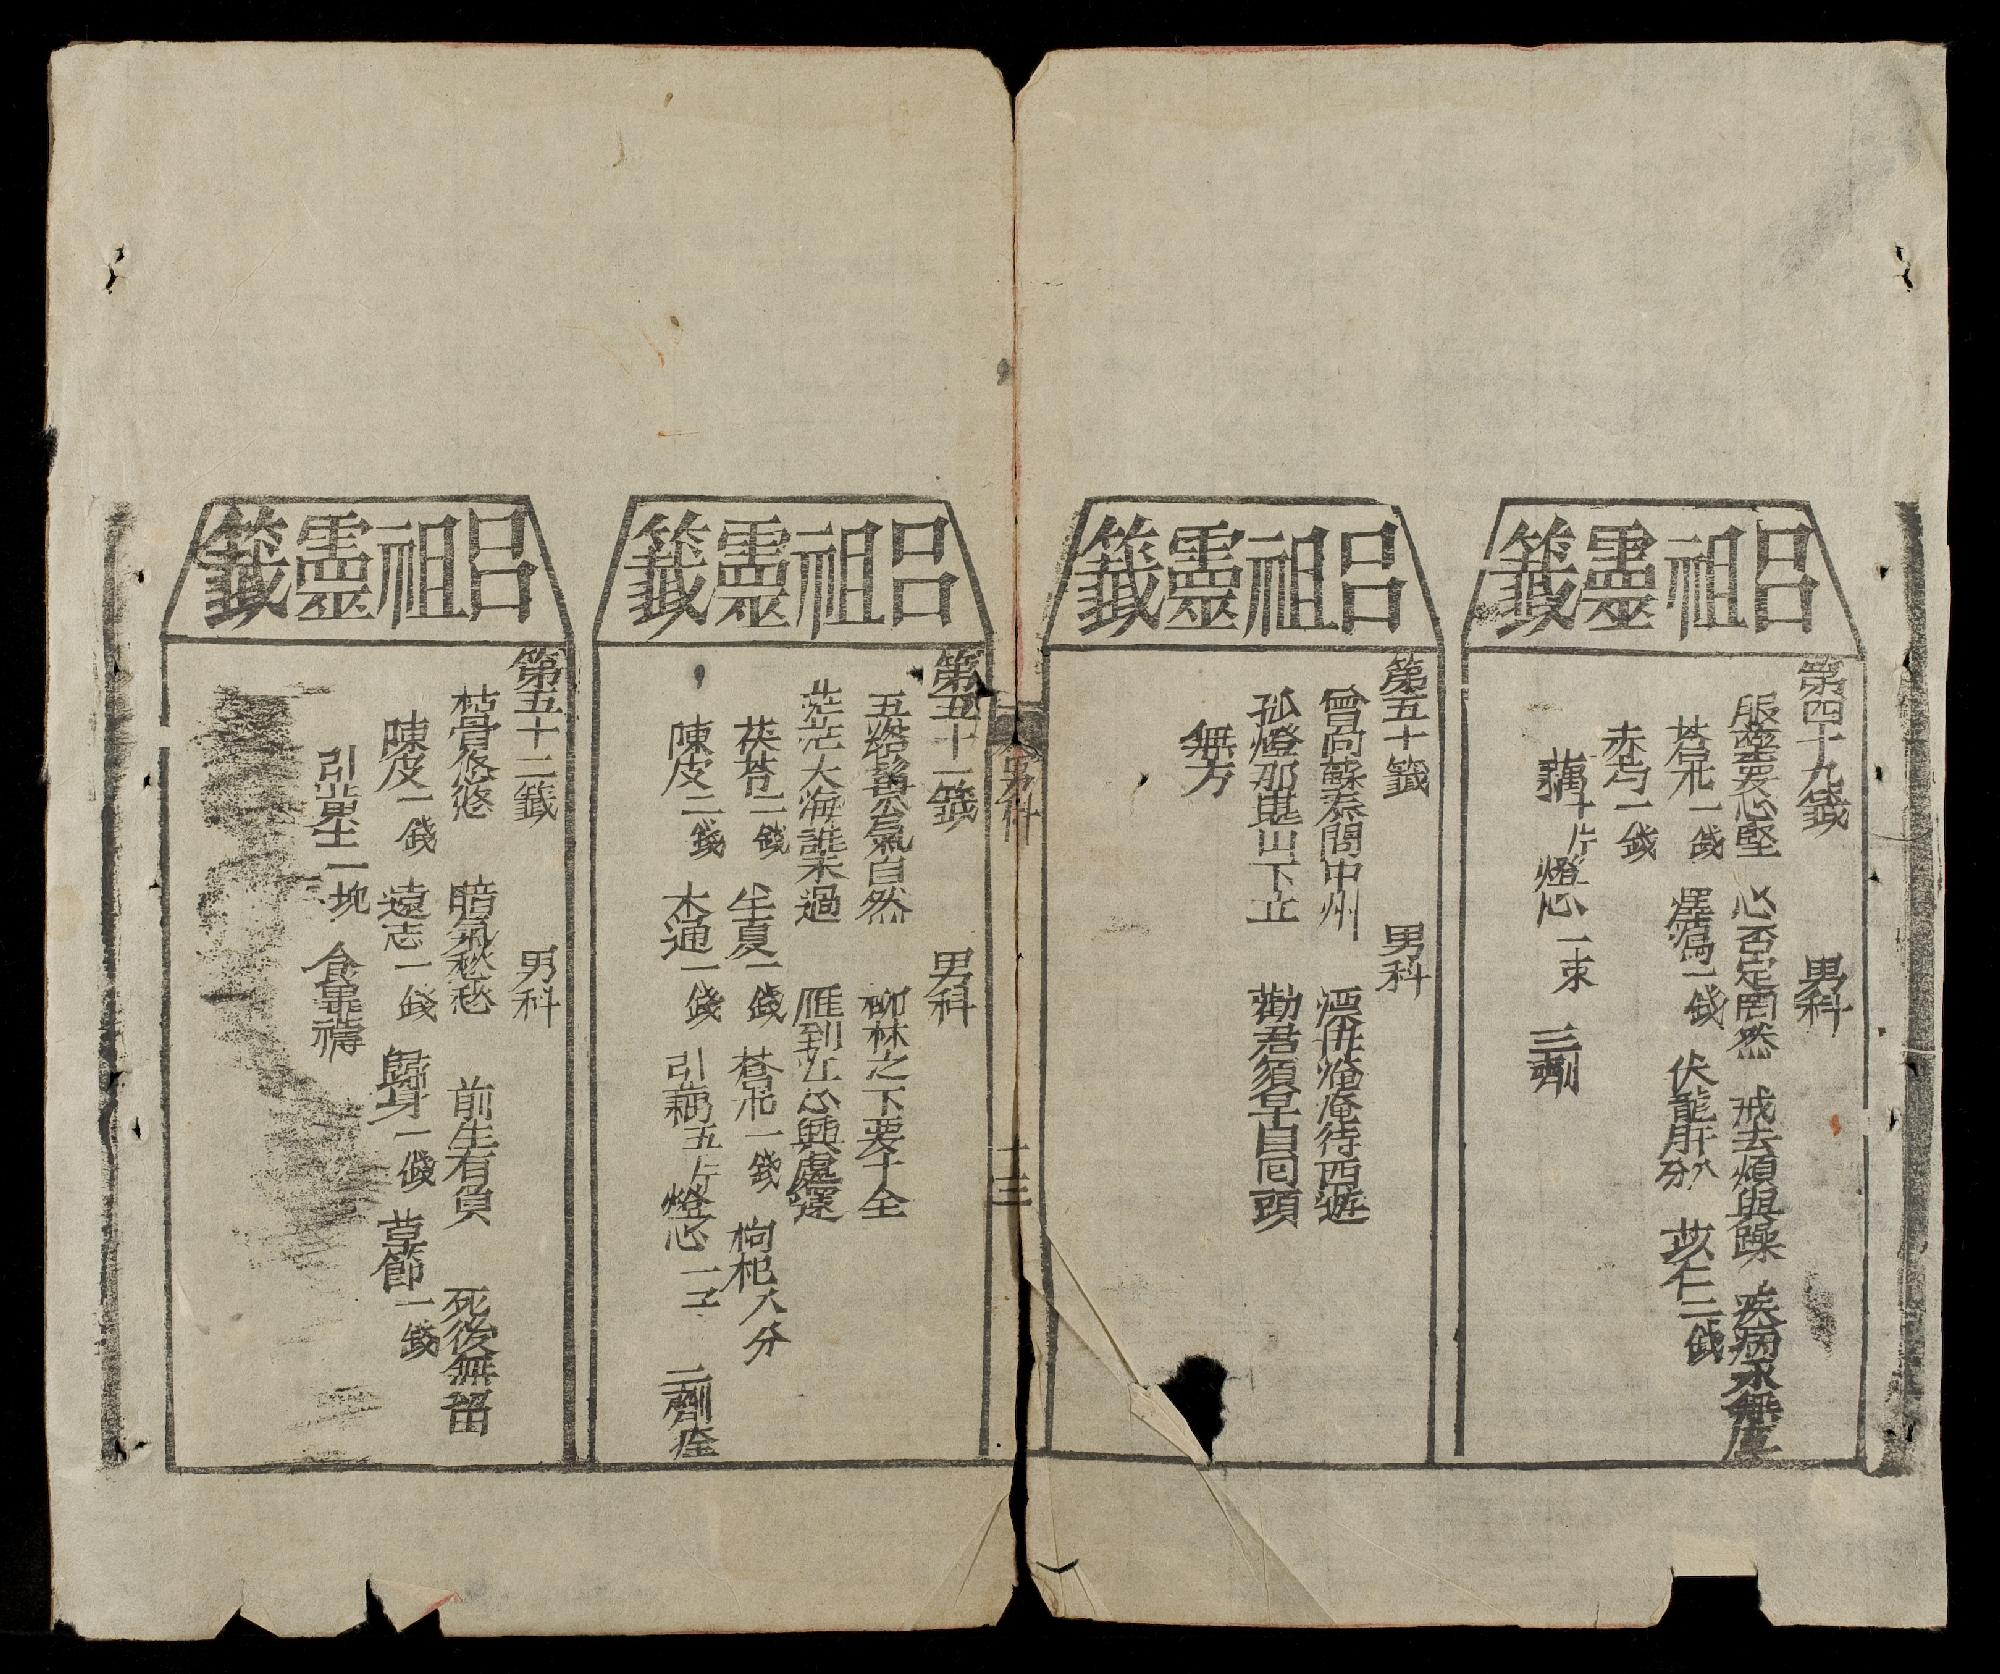 呂祖靈籤
第四十九籤 男科
服藥要心堅 心否定罔然 戒去煩與躁 疾病永無虞
蒼朮一錢 澤瀉一錢 伏龍肝八分 苡仁二錢
赤芍一錢
藕十片 燈心一束 三劑
呂祖靈籤
第五十籤 男科
曾向蘇秦問中州 淹庵待西遊
孤燈那堪山下立 勸君須早自回頭
無方
男科
十三
呂祖靈籤
第五十一籤 男科
五公氣自然 柳林之下要十全
茫茫大海誰未過 雁到江心興處還
茯苓二錢 生夏一錢 蒼朮一錢 枸杞八分
陳皮二錢 木通一錢 引藕五片 燈心一子 二劑痊
呂祖靈籤
第五十二籤 男科
枯骨悠悠 暗氣愁愁 前生有負 死後無留
陳皮一錢 遠志一錢 歸身一錢 草節一錢
引黃土一塊 食畢禱